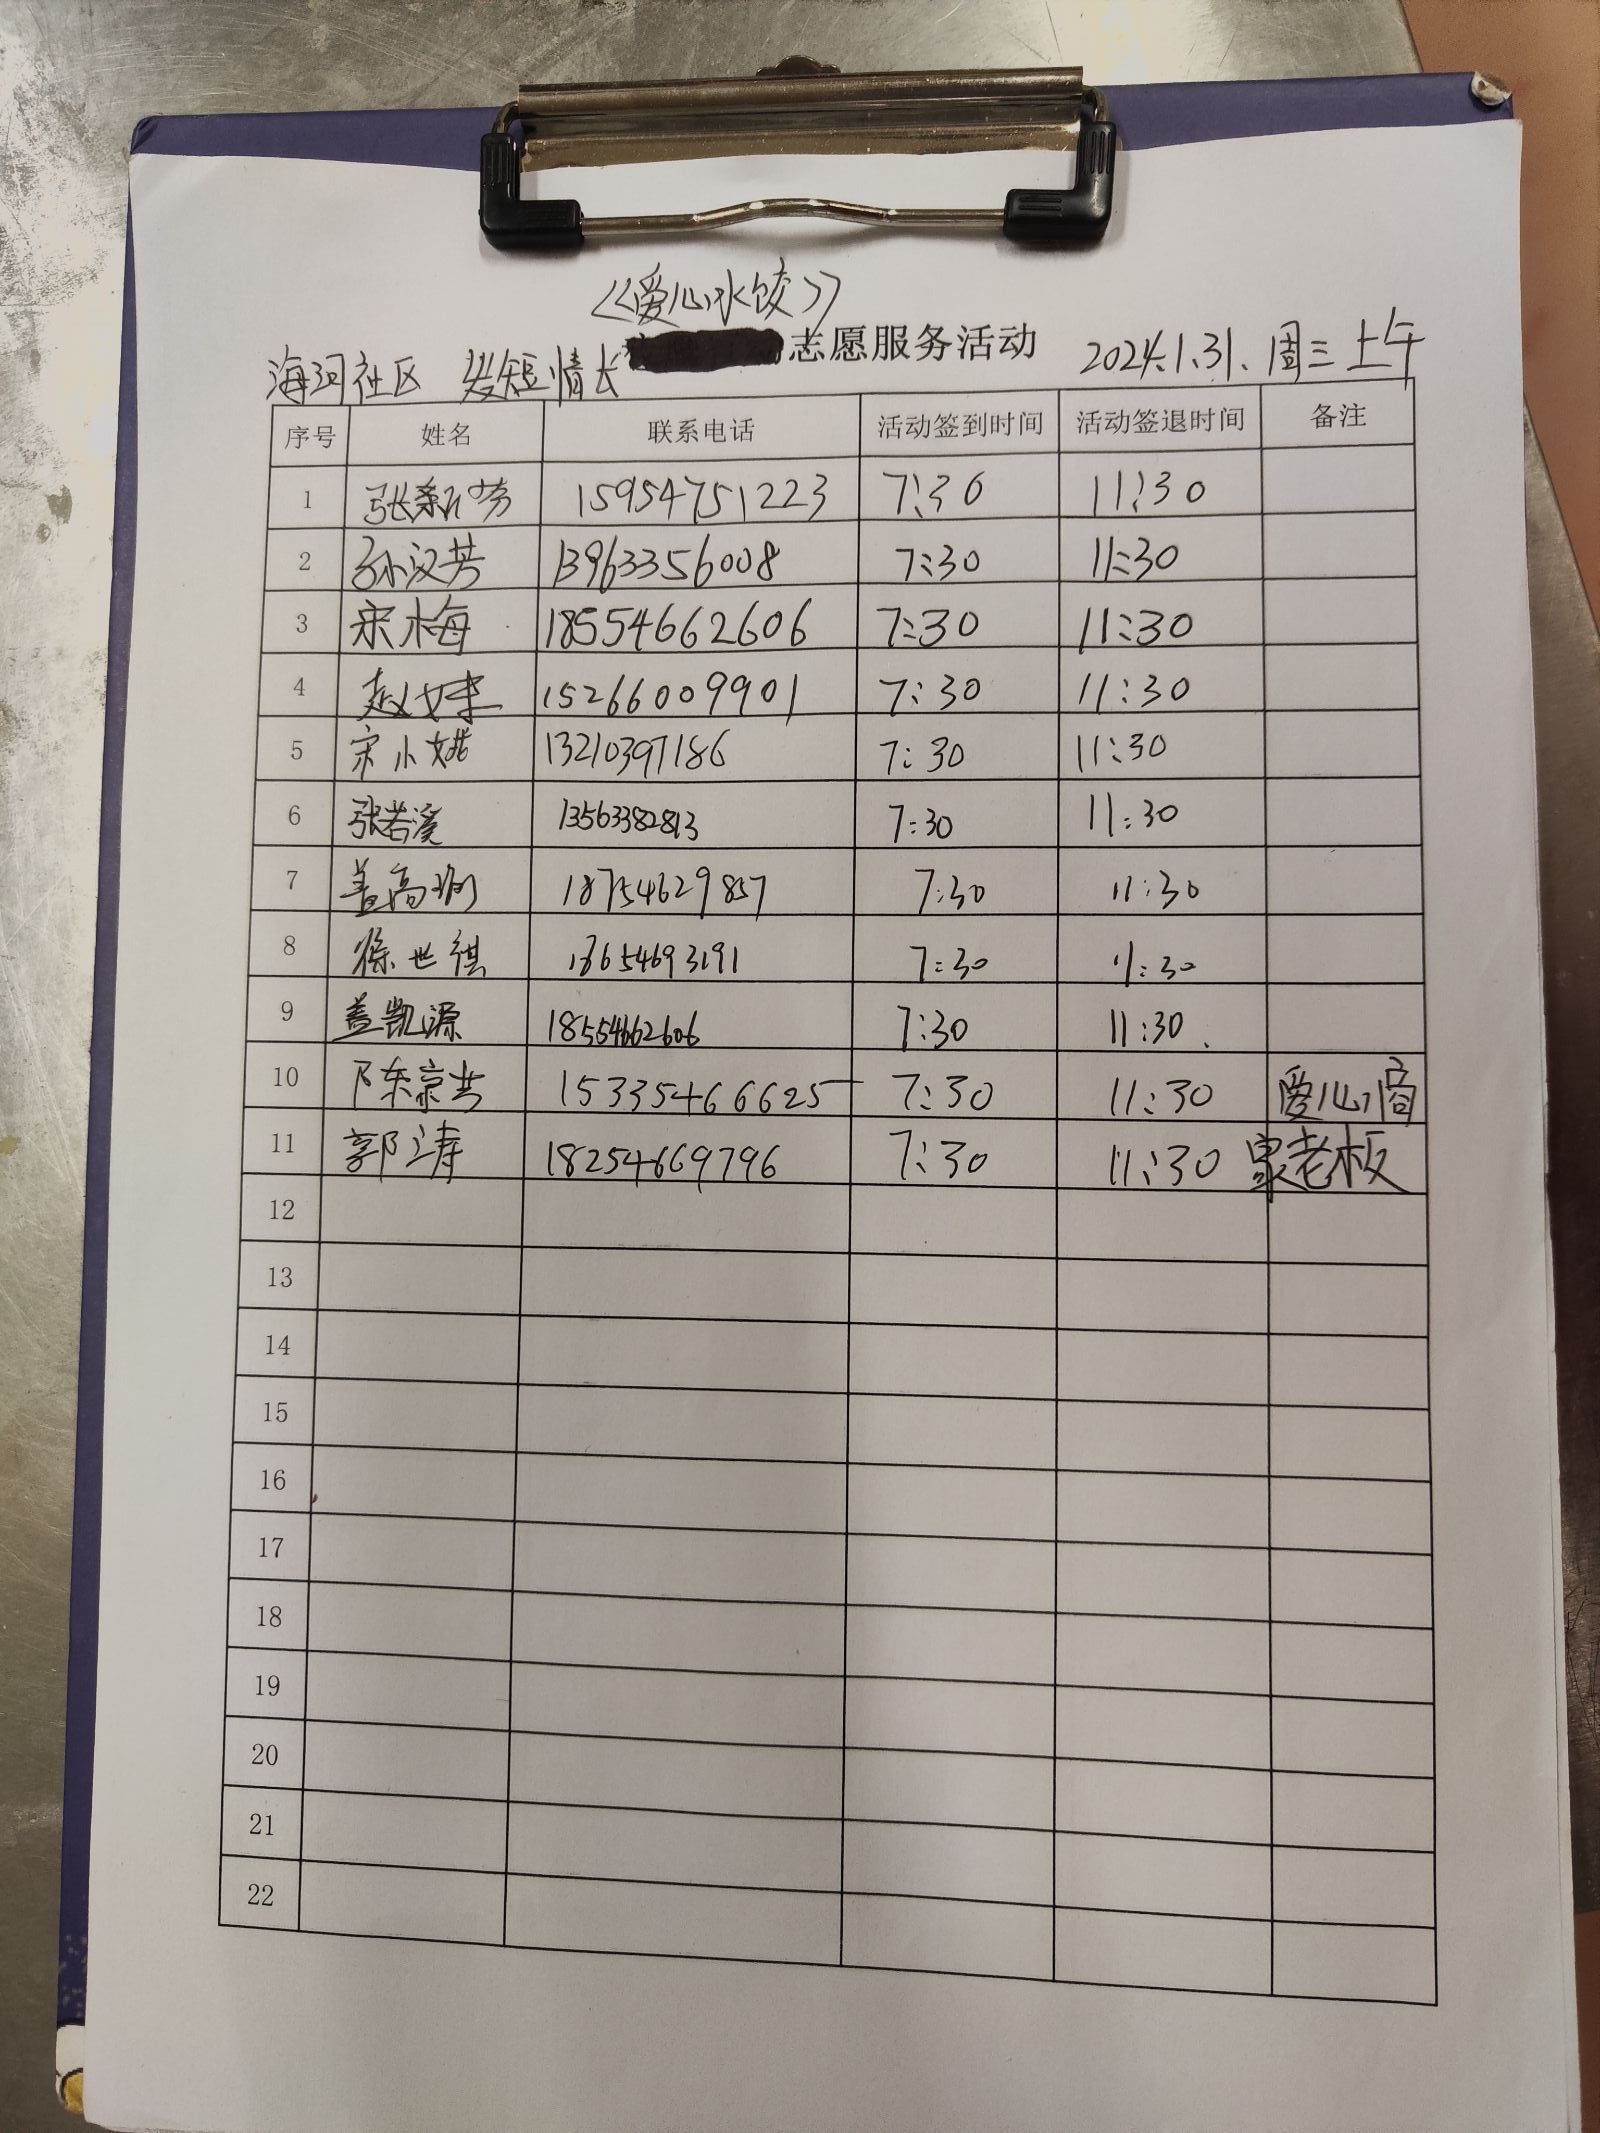 《爱心水饺》
海河社区 发短情长 志愿服务活动 2024.1.31.周三上午
序号 姓名 联系电话 活动签到时间 活动签退时间 备注
1 张新芳 15954751223 7:30 11:30
2 孙汉芳 13963356008 7:30 11:30
3 宋梅 18554662606 7:30 11:30
4 赵 15266009901 7:30 11:30
5 宋小娥 13210397186 7:30 11:30
6 张若溪 13563382813 7:30 11:30
7 盖高 18754629857 7:30 11:30
8 徐世祺 18654693191 7:30 11:30
9 盖凯源 18554662606 7:30 11:30
10 陈京芸 15335466625 7:30 11:30 爱心商
11 郭涛 18254669796 7:30 11:30 家老板
12
13
14
15
16
17
18
19
20
21
22